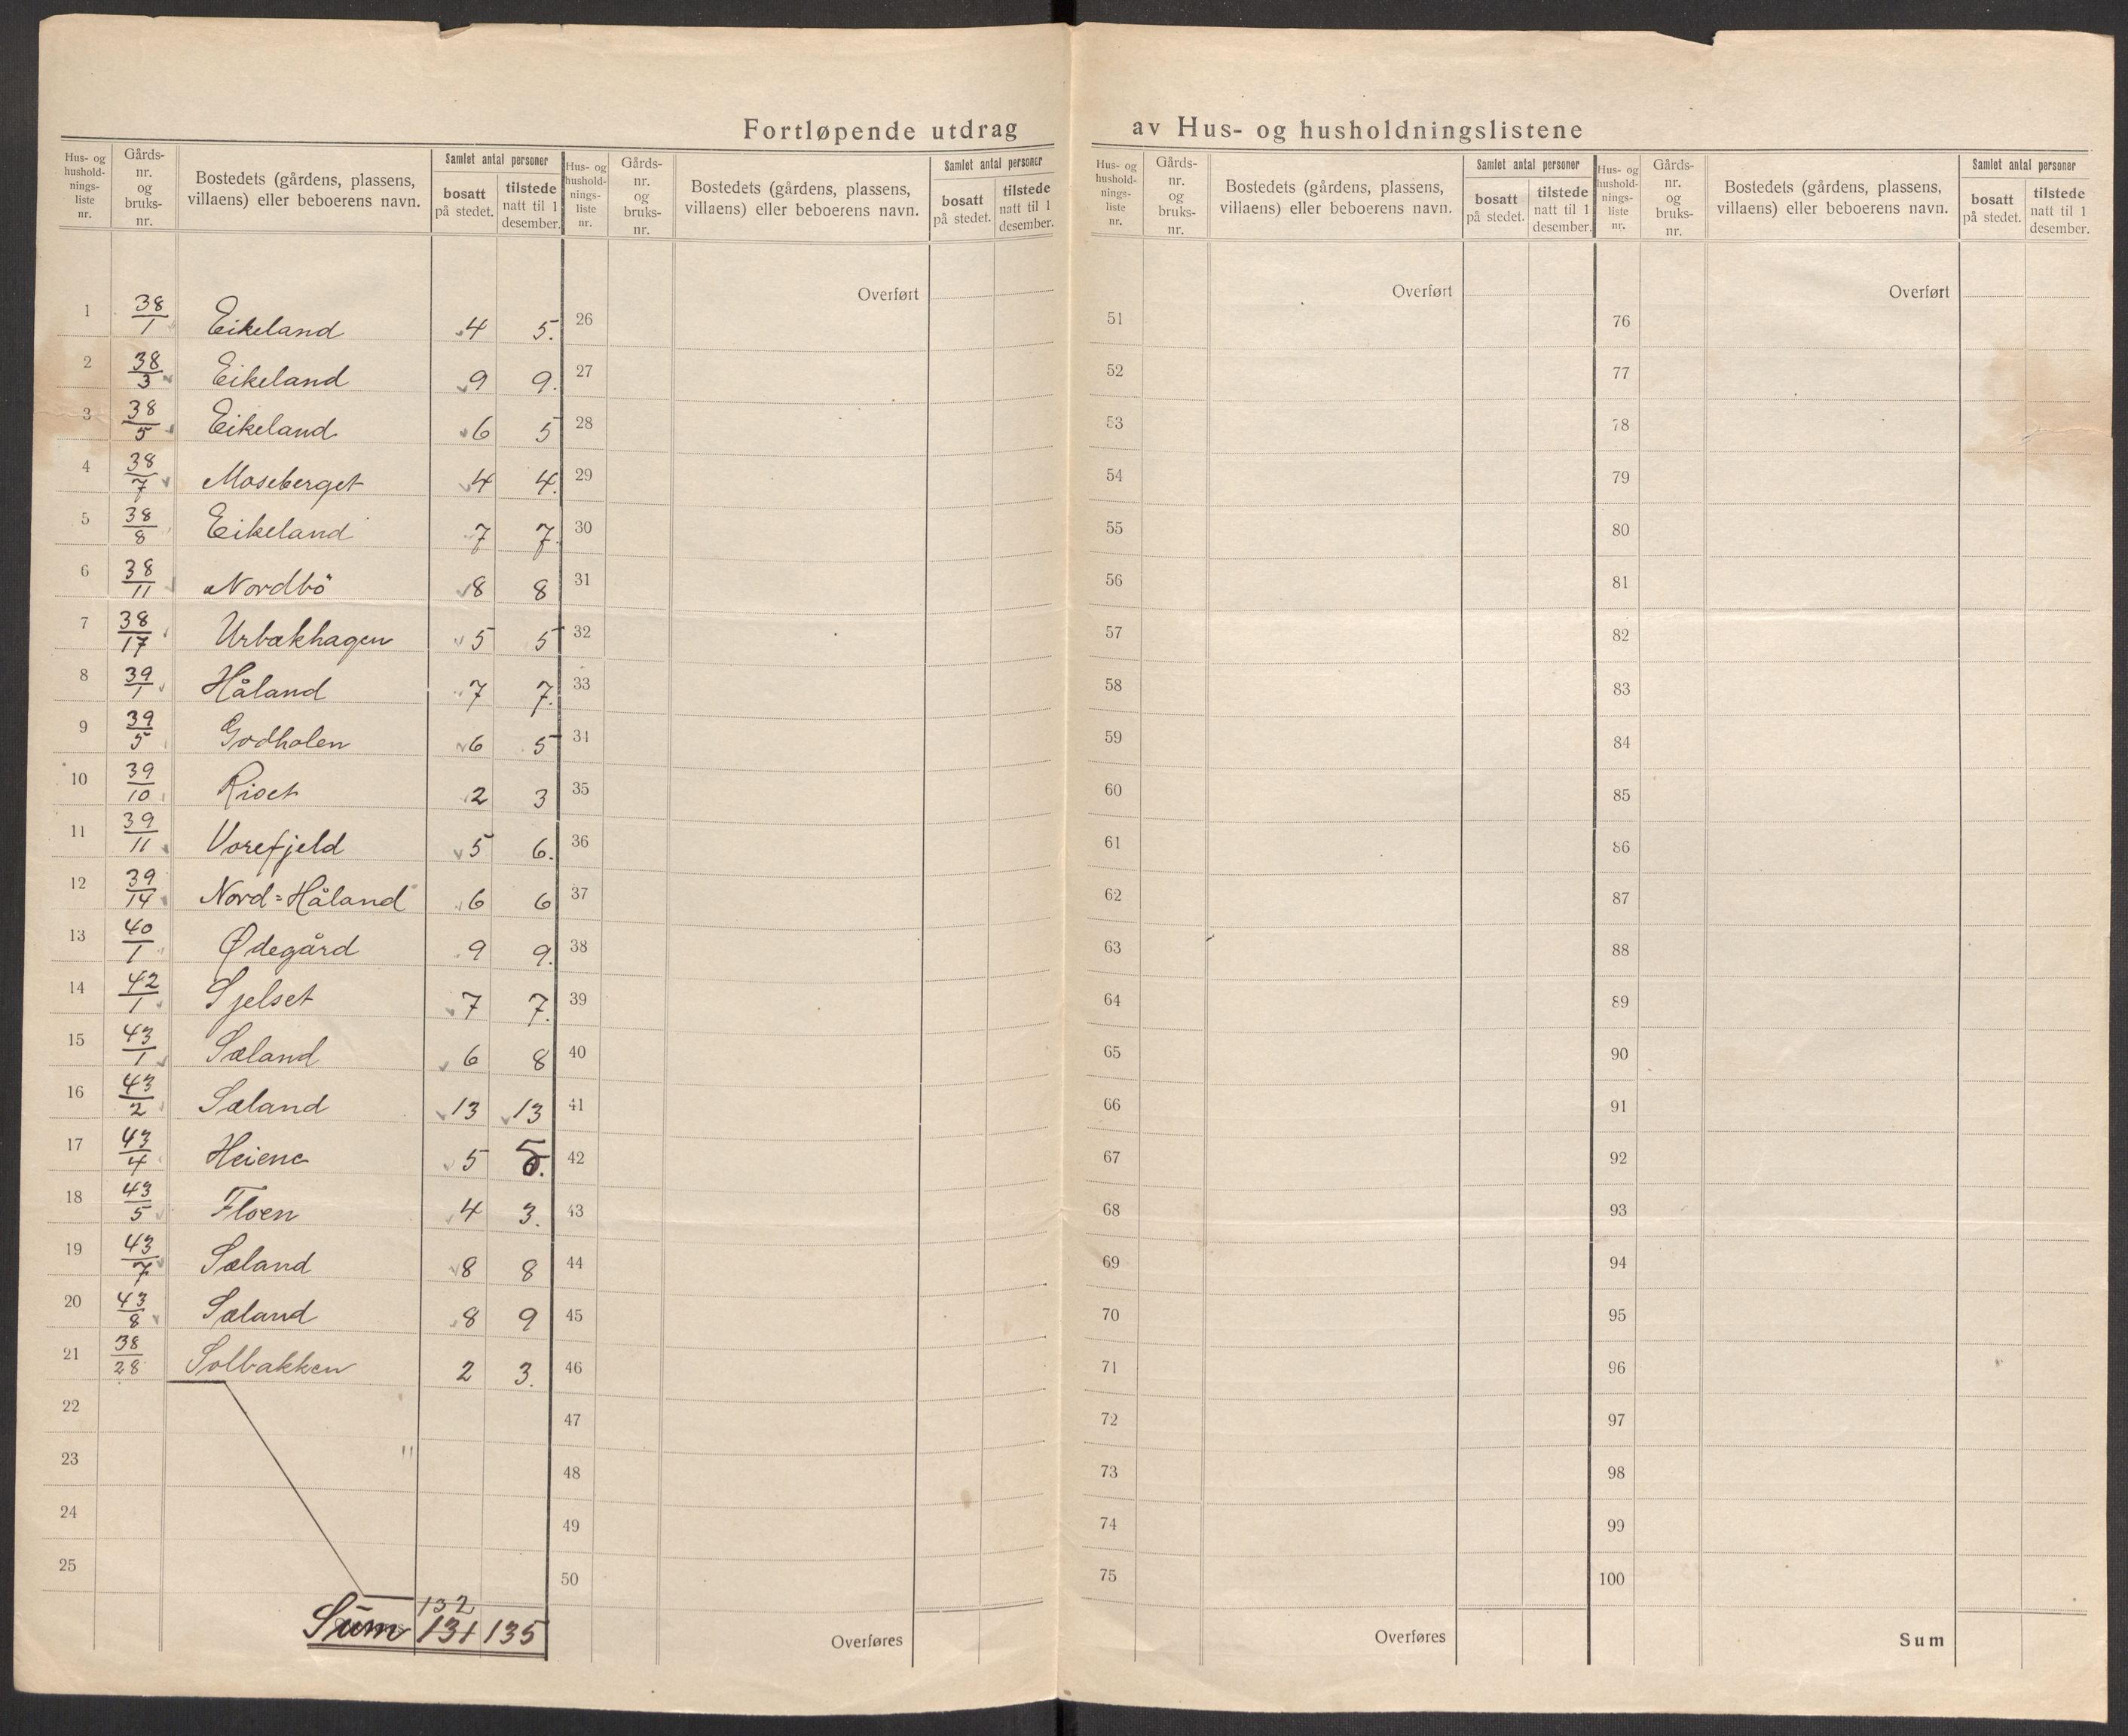 Fortløpende utdrag av Hus- og husholdningslistene
Hus- og hushold-nings-liste nr. Gårds-nr. og bruks-nr. Bostedets (gårdens, plassens, villaens) eller beboerens navn. Samlet antal personer bosatt på stedet. tilstede natt til 1 desember.
Hus- og hushold-nings-liste nr. Gårds-nr. og bruks-nr. Bostedets (gårdens, plassens, villaens) eller beboerens navn. Samlet antal personer bosatt på stedet. tilstede natt til 1 desember.
Hus- og hushold-nings-liste nr. Gårds-nr. og bruks-nr. Bostedets (gårdens, plassens, villaens) eller beboerens navn. Samlet antal personer bosatt på stedet. tilstede natt til 1 desember.
Hus- og hushold-nings-liste nr. Gårds-nr. og bruks-nr. Bostedets (gårdens, plassens, villaens) eller beboerens navn. Samlet antal personer bosatt på stedet. tilstede natt til 1 desember.
Overført Overført Overført
1 38/1 Eikeland 4 5. 26 51 76
2 38/3 Eikeland 9 9. 27 52 77
3 38/5 Eikeland 6 5 28 53 78
4 38/7 Moseberget 4 4. 29 54 79
5 38/8 Eikeland 7 7. 30 55 80
6 38/11 Nordbö 8 8 31 56 81
7 38/17 Urbækhagen 5 5 32 57 82
8 39/1 Håland 7 7. 33 58 83
9 39/5 Godholen 6 5 34 59 84
10 39/10 Riset 2 3 35 60 85
11 39/11 Vorefjeld 5 6. 36 61 86
12 39/14 Nord=Håland 6 6 37 62 87
13 40/1 Ødegård 9 9. 38 63 88
14 42/1 Sjelset 7 7. 39 64 89
15 43/1 Sæland 6 8 40 65 90
16 43/2 Sæland 13 13 41 66 91
17 43/4 Heiene 5 5. 42 67 92
18 43/5 Floen 4 3. 43 68 93
19 43/7 Sæland 8 8 44 69 94
20 43/8 Sæland 8 9 45 70 95
21 38/28 Solbakken 2 3. 46 71 96
22 47 72 97
23 " 48 73 98
24 49 74 99
25 50 75 100
132
Sum 131 135 Overføres Overføres Sum